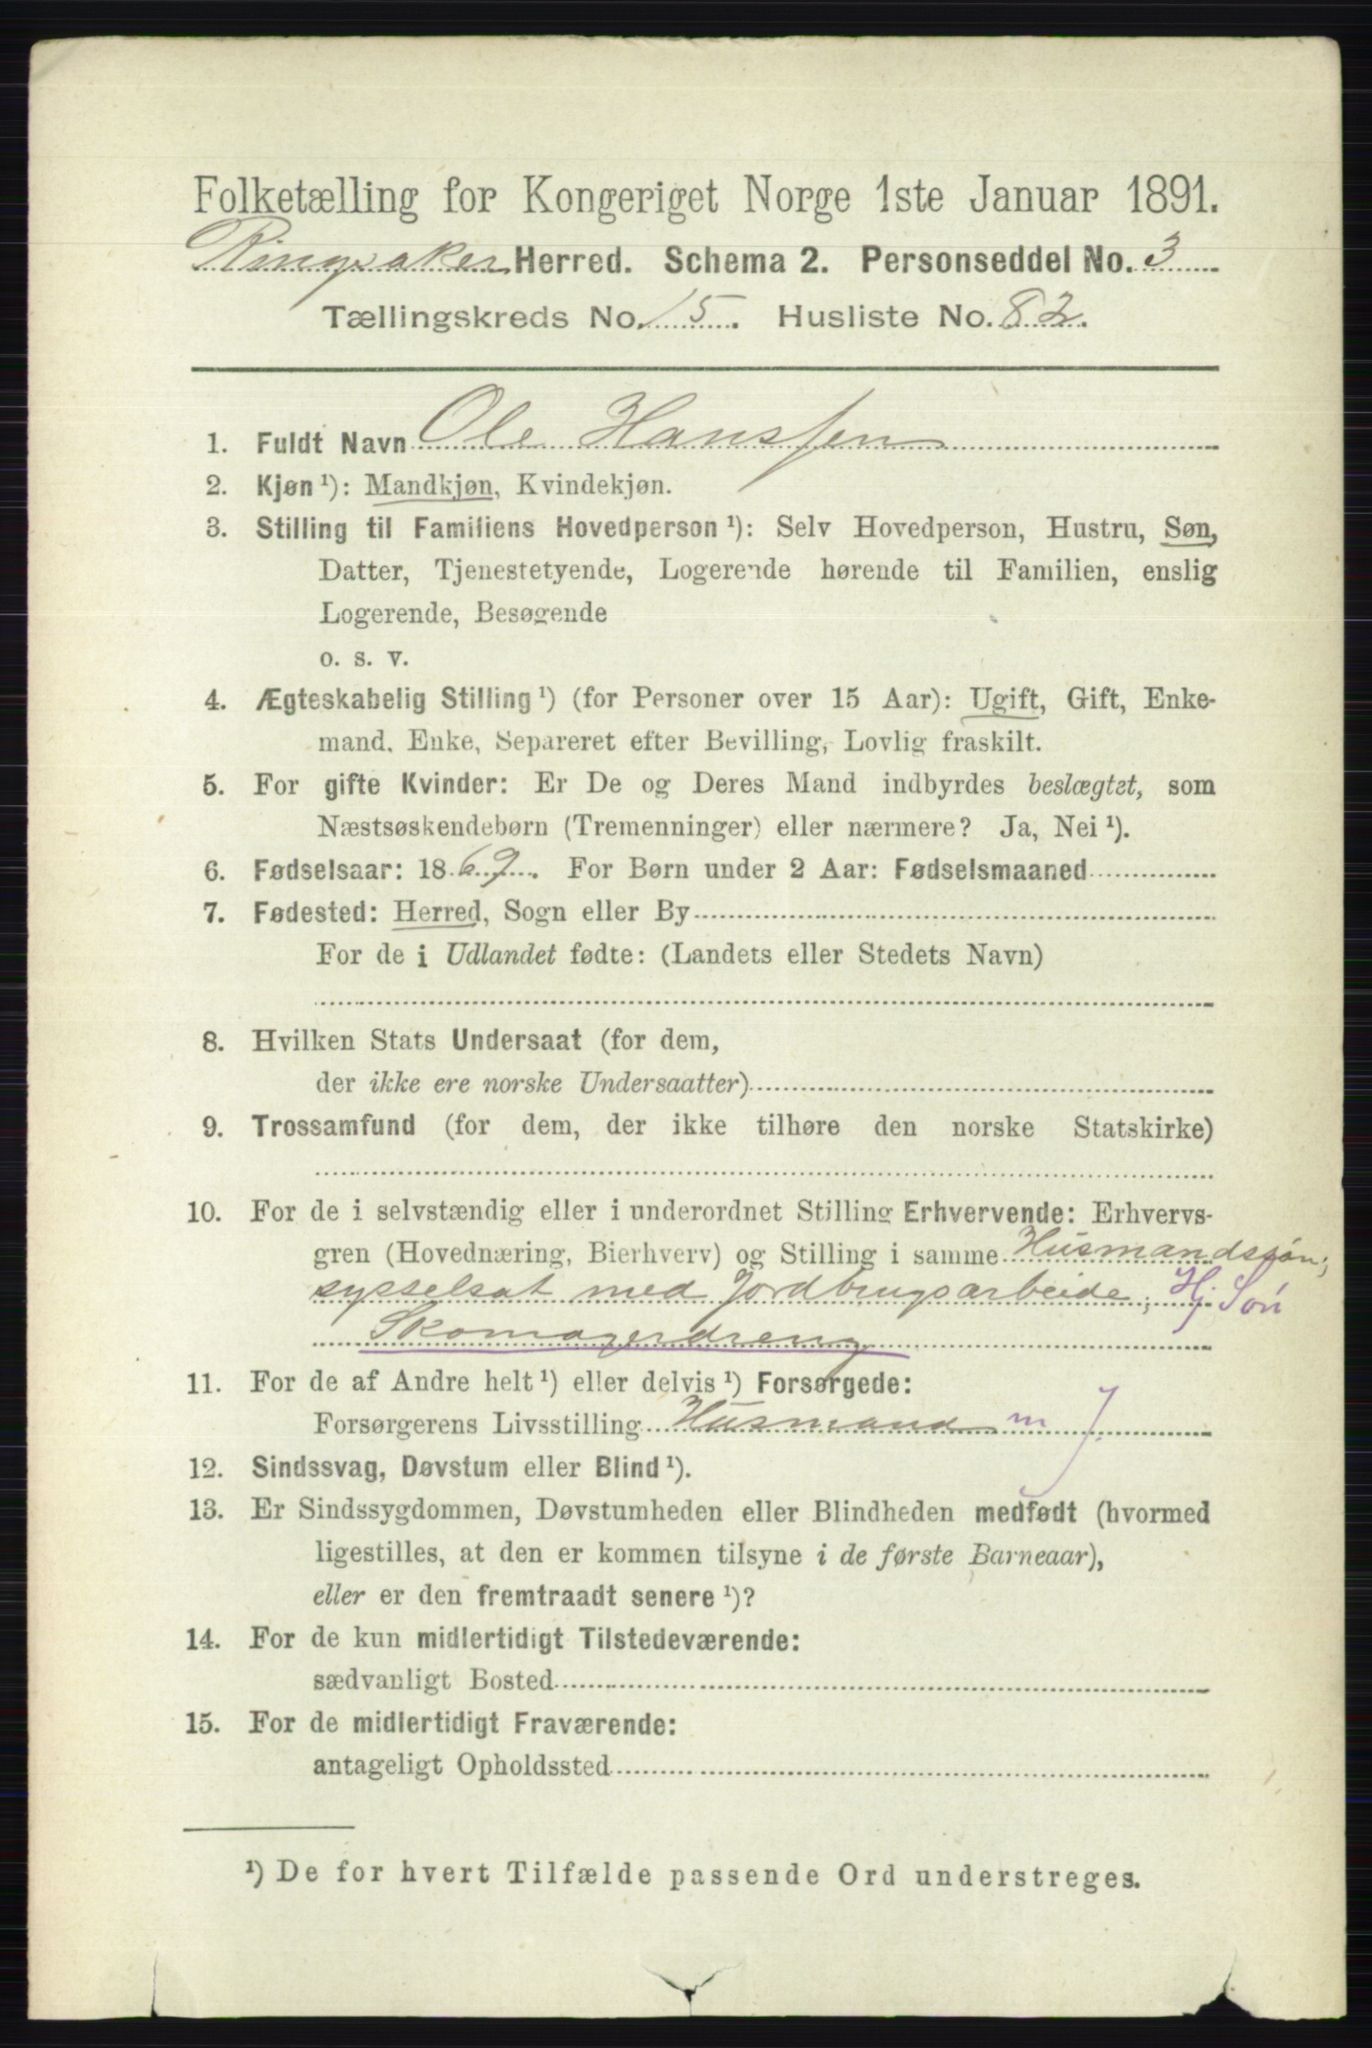 Folketælling for Kongeriget Norge 1ste Januar 1891.
Ringsaker Herred. Schema 2. Personseddel No. 3
Tællingskreds No. 15. Husliste No. 82.
1. Fuldt Navn Ole Hanssen
2. Kjøn ¹): Mandkjøn, Kvindekjøn.
3. Stilling til Familiens Hovedperson ¹): Selv Hovedperson, Hustru, Søn,
Datter, Tjenestetyende, Logerende hørende til Familien, enslig
Logerende, Besøgende
o. s. v.
4. Ægteskabelig Stilling ¹) (for Personer over 15 Aar): Ugift, Gift, Enke-
mand, Enke, Separeret efter Bevilling, Lovlig fraskilt.
5. For gifte Kvinder: Er De og Deres Mand indbyrdes beslægtet, som
Næstsøskendebørn (Tremenninger) eller nærmere? Ja, Nei ¹).
6. Fødselsaar: 1869. For Børn under 2 Aar: Fødselsmaaned
7. Fødested: Herred, Sogn eller By
For de i Udlandet fødte: (Landets eller Stedets Navn)
8. Hvilken Stats Undersaat (for dem,
der ikke ere norske Undersaatter)
9. Trossamfund (for dem, der ikke tilhøre den norske Statskirke)
10. For de i selvstændig eller i underordnet Stilling Erhvervende: Erhvervs-
gren (Hovednæring, Bierhverv) og Stilling i samme Husmandssøn,
sysselsat med Jordbrugsarbeide; Hj. Søn
Skomagerdreng
11. For de af Andre helt ¹) eller delvis ¹) Forsørgede:
Forsørgerens Livsstilling Husmand m J.
12. Sindssvag, Døvstum eller Blind ¹).
13. Er Sindssygdommen, Døvstumheden eller Blindheden medfødt (hvormed
ligestilles, at den er kommen tilsyne i de første Barneaar),
eller er den fremtraadt senere ¹)?
14. For de kun midlertidigt Tilstedeværende:
sædvanligt Bosted
15. For de midlertidigt Fraværende:
antageligt Opholdssted
¹) De for hvert Tilfælde passende Ord understreges.